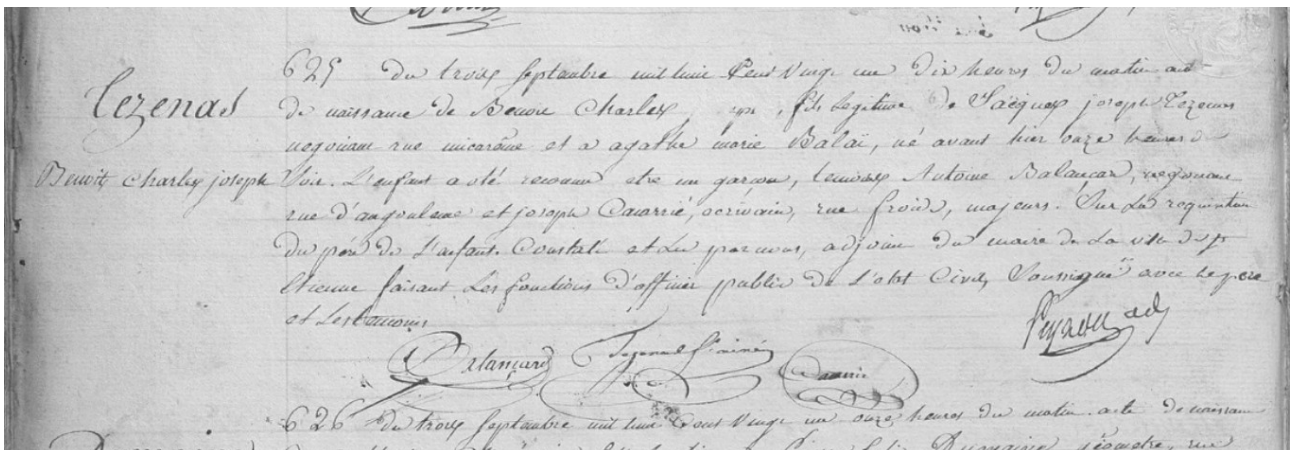 Tezenas
Benoit Charles joseph
625 du trois septembre mil huit Cent Vingt un dix heures du matin acte
de naissance de Benoit Charles, fils Legitime de Jacques joseph Tezenas
négociant rue micarême et a agathe marie Balaï, né avant hier onze heures du
Soir. L'enfant a été reconnu etre un garçon, temoins Antoine Balancar, negociant
rue d'angouleme et joseph écrivain, rue froide, majeurs. Sur La requisition
du père de L'enfant. Constaté et Lu par nous, adjoint du maire de La ville de St
Etienne faisant Les fonctions d'officier public de L'etat Civil, Soussigné avec Le pere
et Les temoins
Balançard Tezenas
626 du trois septembre mil huit Cent Vingt un onze heures du matin acte de naissance
géometre, rue